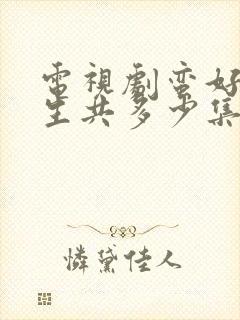 電視劇蛮好
生共多少集
憐黛佳人